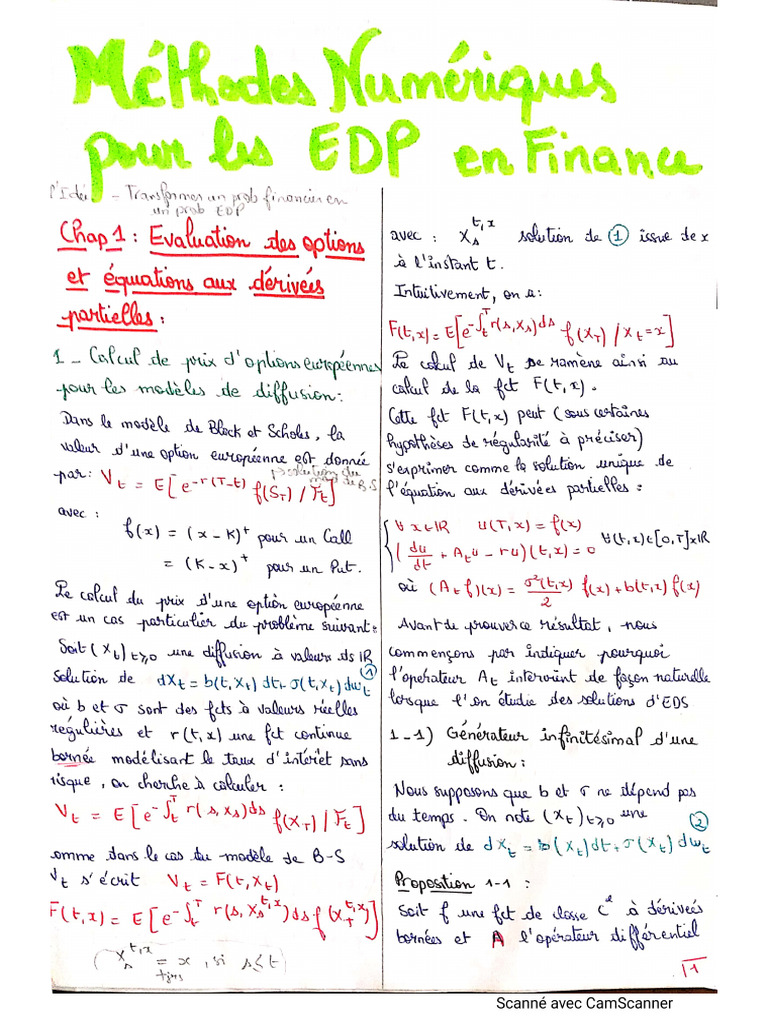 Méthodes Numériques
pour les EDP en Finance
l'Idée - Transformer un prob financier en
un prob EDP
Chap 1 : Evaluation des options
et équations aux dérivées
partielles :
1 - Calcul de prix d'options européennes
pour les modèles de diffusion :
Dans le modèle de Black et Scholes, la
valeur d'une option européenne est donnée
par : V_t = E[e^{-r(T-t)} f(S_T) / F_t]
avec :
f(x) = (x - K)^+ pour un Call
= (K - x)^+ pour un Put.
Le calcul du prix d'une option européenne
est un cas particulier du problème suivant :
Soit (X_t)_{t≥0} une diffusion à valeurs ds IR
solution de dX_t = b(t,X_t) dt + σ(t,X_t) dw_t ①
où b et σ sont des fcts à valeurs réelles
régulières et r(t,x) une fct continue
bornée modélisant le taux d'intérêt sans
risque, on cherche à calculer :
V_t = E[e^{-∫_t^T r(s,X_s)ds} f(X_T) / F_t]
omme dans le cas du modèle de B-S
V_t s'écrit V_t = F(t,X_t)
F(t,x) = E[e^{-∫_t^T r(s,X_s^{t,x})ds} f(X_T^{t,x})]
(X_s^{t,x} = x, si s ≤ t)
avec : X_s^{t,x} solution de ① issue de x
à l'instant t.
Intuitivement, on a :
F(t,x) = E[e^{-∫_t^T r(s,X_s)ds} f(X_T) / X_t = x]
Le calcul de V_t se ramène ainsi au
calcul de la fct F(t,x).
Cette fct F(t,x) peut (sous certaines
hypothèses de régularité à préciser)
s'exprimer comme la solution unique de
l'équation aux dérivées partielles :
{ ∀ x ∈ IR u(T,x) = f(x)
(du/dt + A_t u - r u)(t,x) = 0 ∀(t,x) ∈ [0,T] x IR
où (A_t f)(x) = σ²(t,x)/2 f(x) + b(t,x) f(x)
Avant de prouver ce résultat, nous
commençons par indiquer pourquoi
l'operateur A_t intervient de façon naturelle
lorsque l'on étudie des solutions d'EDS
1-1) Générateur infinitésimal d'une
diffusion :
Nous supposons que b et σ ne dépend pas
du temps. On note (X_t)_{t≥0} une
solution de dX_t = b(X_t) dt + σ(X_t) dw_t ②
Proposition 1-1 :
Soit f une fct de classe C² à dérivées
bornées et A l'opérateur différentiel
1
Scanné avec CamScanner